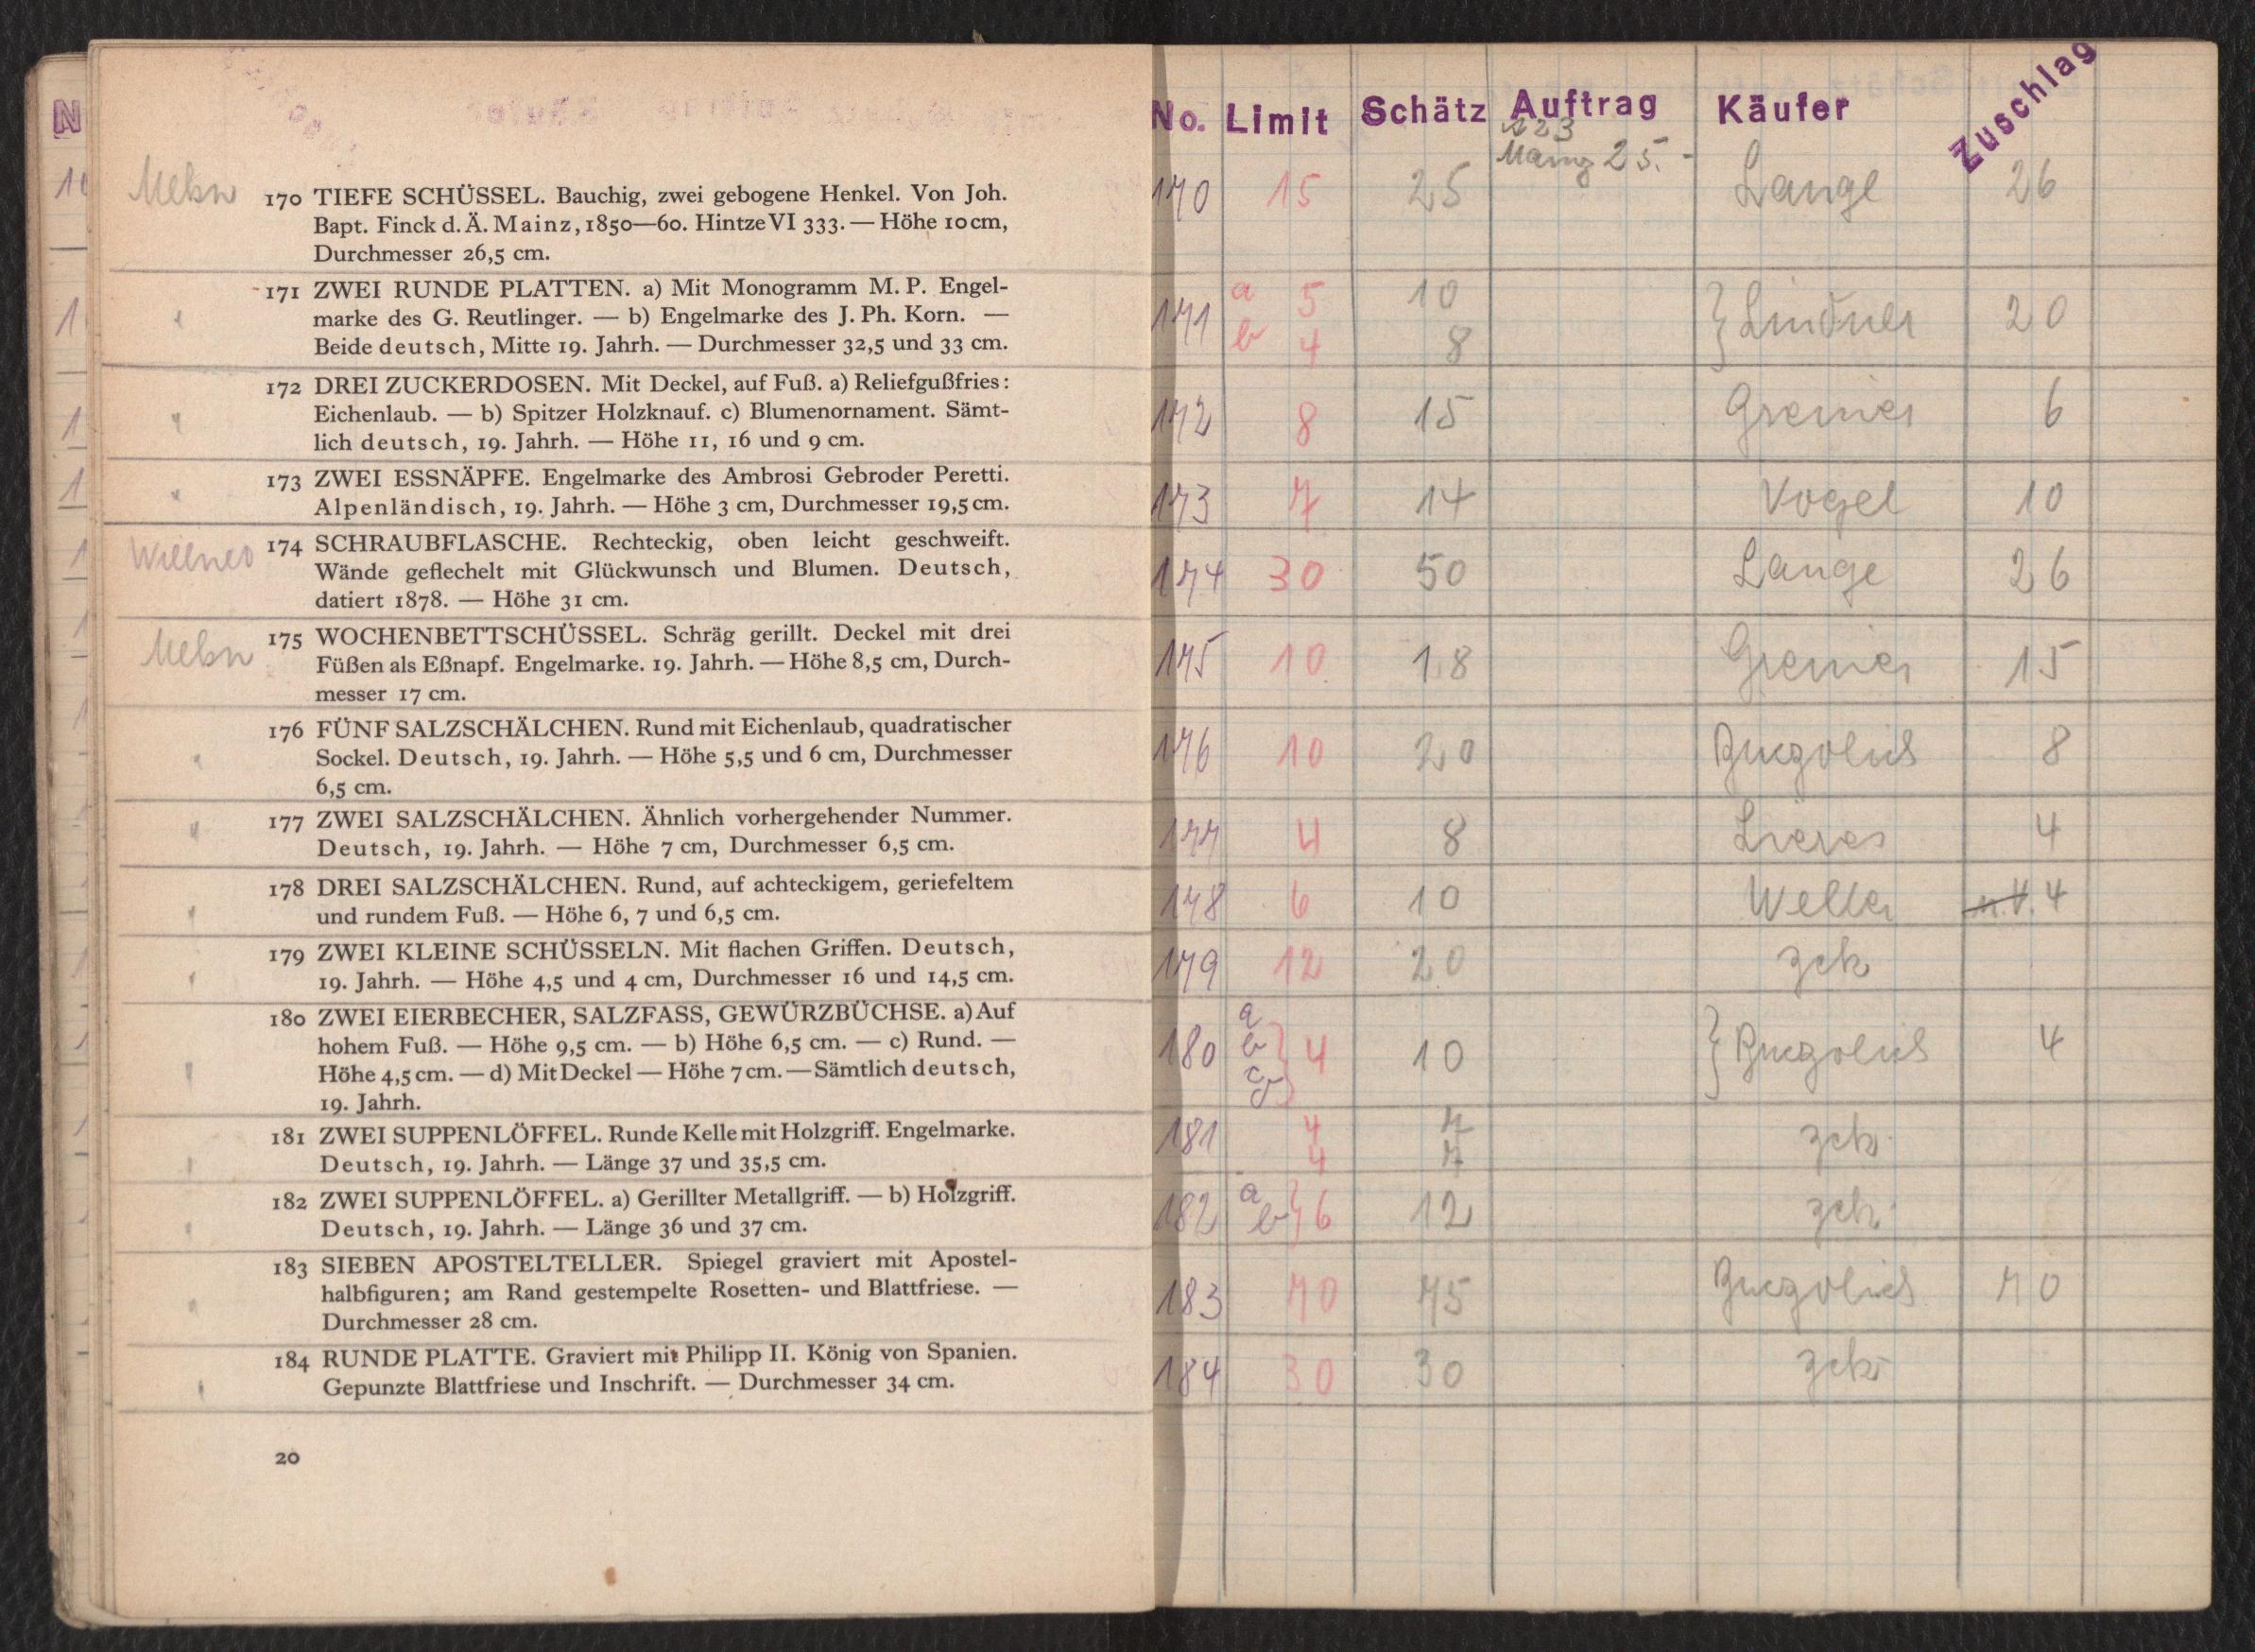 170 TIEFE SCHÜSSEL. Bauchig, zwei gebogene Henkel. Von Joh.
Bapt. Finck d. Ä. Mainz, 1850—60. Hintze VI 333. — Höhe 10 cm,
Durchmesser 26,5 cm.
171 ZWEI RUNDE PLATTEN. a) Mit Monogramm M. P. Engel-
marke des G. Reutlinger. — b) Engelmarke des J. Ph. Korn. —
Beide deutsch, Mitte 19. Jahrh. — Durchmesser 32,5 und 33 cm.
172 DREI ZUCKERDOSEN. Mit Deckel, auf Fuß. a) Reliefgußfries:
Eichenlaub. — b) Spitzer Holzknauf. c) Blumenornament. Sämt-
lich deutsch, 19. Jahrh. — Höhe 11, 16 und 9 cm.
173 ZWEI ESSNÄPFE. Engelmarke des Ambrosi Gebroder Peretti.
Alpenländisch, 19. Jahrh. — Höhe 3 cm, Durchmesser 19,5 cm.
Willner 174 SCHRAUBFLASCHE. Rechteckig, oben leicht geschweift.
Wände geflechelt mit Glückwunsch und Blumen. Deutsch,
datiert 1878. — Höhe 31 cm.
175 WOCHENBETTSCHÜSSEL. Schräg gerillt. Deckel mit drei
Füßen als Eßnapf. Engelmarke. 19. Jahrh. — Höhe 8,5 cm, Durch-
messer 17 cm.
176 FÜNF SALZSCHÄLCHEN. Rund mit Eichenlaub, quadratischer
Sockel. Deutsch, 19. Jahrh. — Höhe 5,5 und 6 cm, Durchmesser
6,5 cm.
177 ZWEI SALZSCHÄLCHEN. Ähnlich vorhergehender Nummer.
Deutsch, 19. Jahrh. — Höhe 7 cm, Durchmesser 6,5 cm.
178 DREI SALZSCHÄLCHEN. Rund, auf achteckigem, geriefeltem
und rundem Fuß. — Höhe 6, 7 und 6,5 cm.
179 ZWEI KLEINE SCHÜSSELN. Mit flachen Griffen. Deutsch,
19. Jahrh. — Höhe 4,5 und 4 cm, Durchmesser 16 und 14,5 cm.
180 ZWEI EIERBECHER, SALZFASS, GEWÜRZBÜCHSE. a) Auf
hohem Fuß. — Höhe 9,5 cm. — b) Höhe 6,5 cm. — c) Rund. —
Höhe 4,5 cm. — d) Mit Deckel — Höhe 7 cm. — Sämtlich deutsch,
19. Jahrh.
181 ZWEI SUPPENLÖFFEL. Runde Kelle mit Holzgriff. Engelmarke.
Deutsch, 19. Jahrh. — Länge 37 und 35,5 cm.
182 ZWEI SUPPENLÖFFEL. a) Gerillter Metallgriff. — b) Holzgriff.
Deutsch, 19. Jahrh. — Länge 36 und 37 cm.
183 SIEBEN APOSTELTELLER. Spiegel graviert mit Apostel-
halbfiguren; am Rand gestempelte Rosetten- und Blattfriese. —
Durchmesser 28 cm.
184 RUNDE PLATTE. Graviert mit Philipp II. König von Spanien.
Gepunzte Blattfriese und Inschrift. — Durchmesser 34 cm.
20
No. Limit Schätz Auftrag Käufer Zuschlag
Mainz 25.-
170 15 25 Lange 26
171 a 5 10 Lindner 20
b 4 8
172 8 15 Greiner 6
173 7 14 Vogel 10
174 30 50 Lange 26
175 10 18 Greiner 15
176 10 20 8
177 4 8 4
178 6 10 Weller 4
179 12 20 zck
180 a b c d 4 10 4
181 4 7 zck
4 7
182 a b 6 12 zck
183 70 75 70
184 30 30 zck